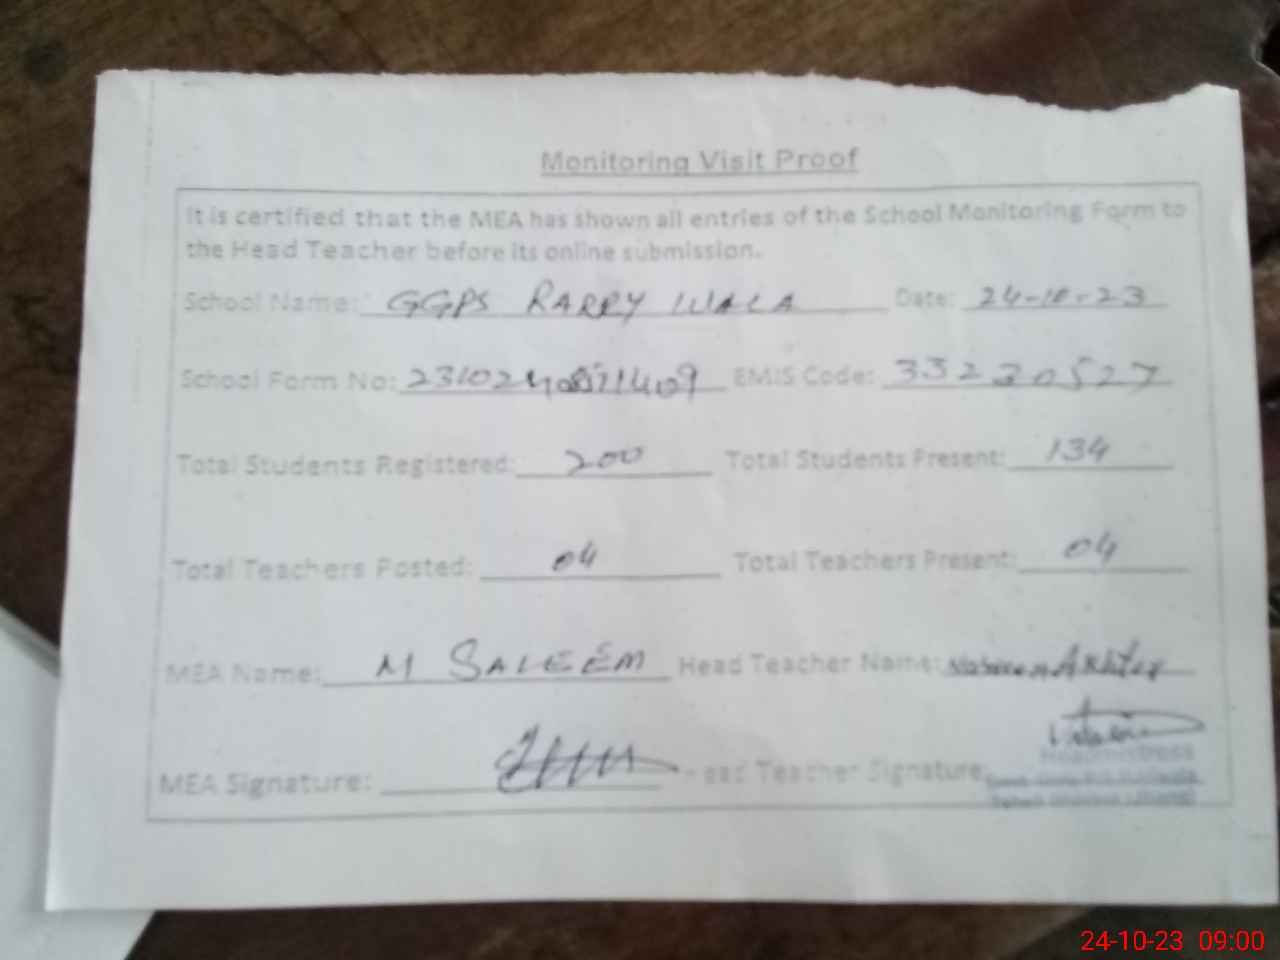 Monitoring Visit Proof
It is certified that the MEA has shown all entries of the School Monitoring Form to
the Head Teacher before its online submission.
School Name: GGPS RARRY WALA Date: 24-10-23
School Form No: EMIS Code: 33230527
Total Students Registered: 200 Total Students Present: 134
Total Teachers Posted: 04 Total Teachers Present: 04
MEA Name: M SALEEM Head Teacher Name: Akhter
MEA Signature: Head Teacher Signature:
Headmistress
24-10-23 09:00